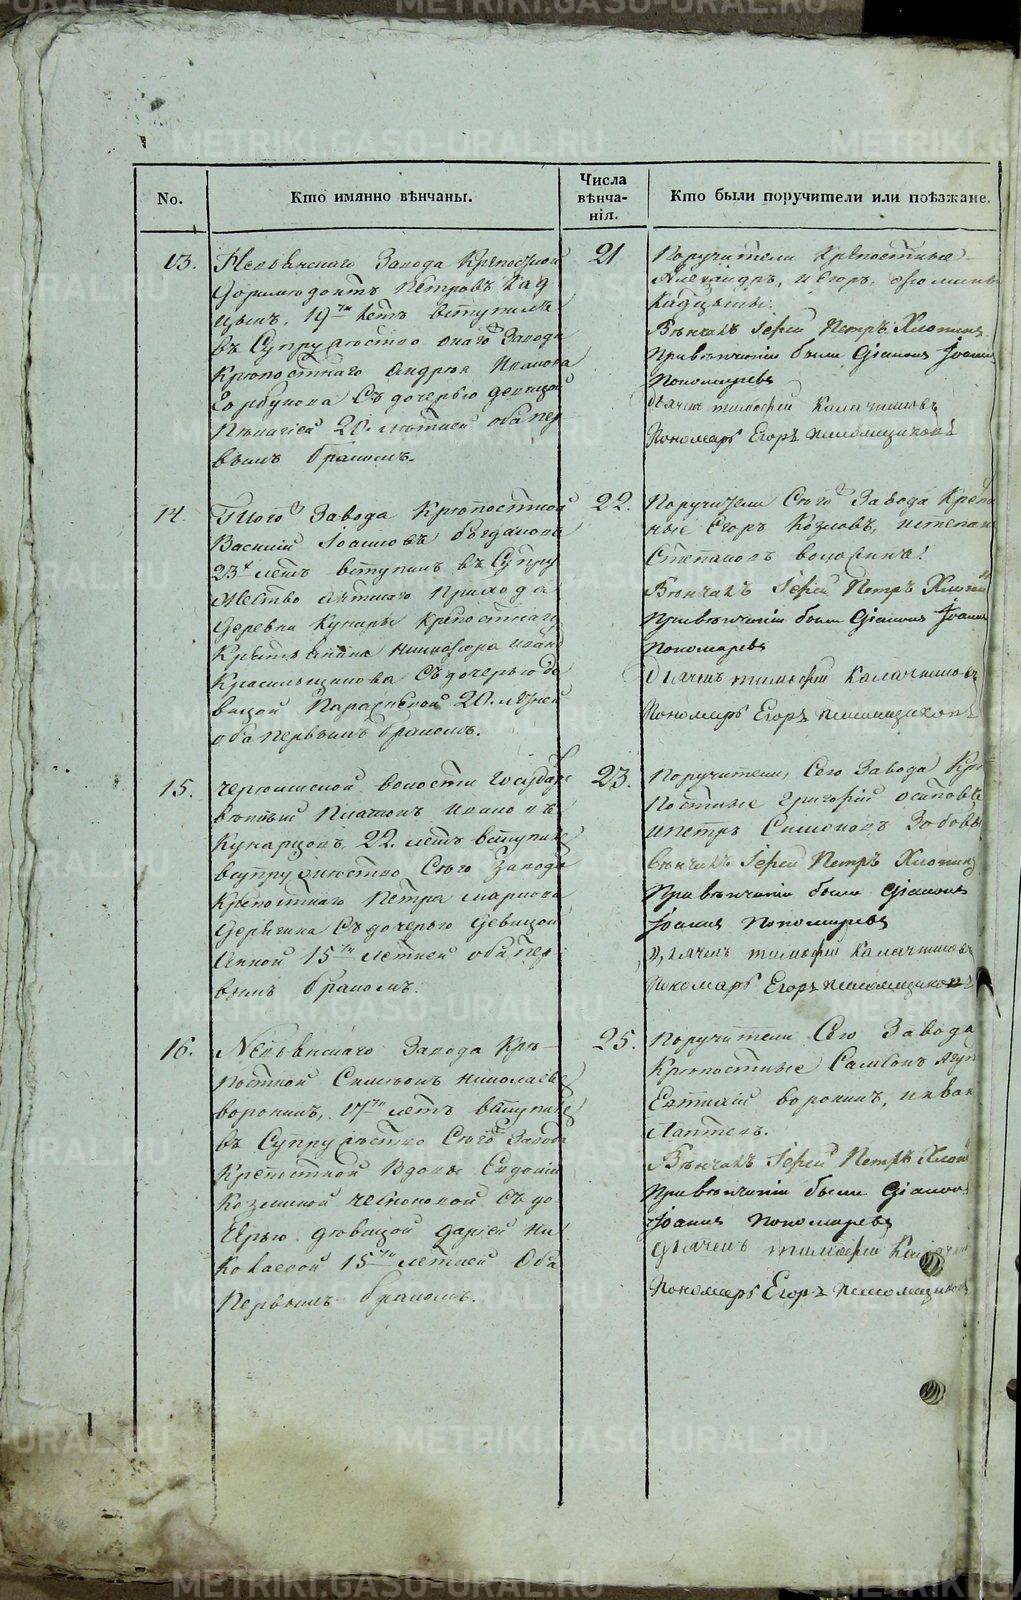 METRIKI.GASO-URAL.RU
No.
Кто имянно вѣнчаны.
Числа
вѣнча-
нія.
Кто были поручители или поѣзжане.
13.
Завода Крѣпостной
Петровъ Кад
цынъ, 19ти летъ вступилъ
въ Супружество онаго Завода
Крѣпостнаго Андрея Иванова
Горбунова Съ дочерью девицой
20. летней оба пер
вымъ бракомъ.
21
Поручители Крѣпостные
Александръ, и Егоръ
Кадцыны.
Вѣнчалъ Іерей Петръ Хлопинъ
При вѣнчаніи были Діаконъ Іоаннъ
Пономаревъ
Дьячекъ тимофей Калачниковъ
Пономарь Егоръ
14.
Того Завода Крѣпостной
Василій Іоанновъ Богдановъ
23х летъ вступилъ въ Супру
жество Прихода
Деревни Кунары Крепостнаго
Крестьянина Никифора Иван
Красильщикова Съ дочерью де
вицой Параскевой 20. летней
оба первымъ бракомъ.
22.
Поручители Сего Завода Крѣпо
ные Егоръ Козловъ, и степанъ
Степановъ
Вѣнчалъ Іерей Петръ Хлопин
При вѣнчаніи были Діаконъ Іоанн
Пономаревъ
Дьячекъ тимофей Калачниковъ
Пономарь Егоръ
15.
волости Государ
Платонъ Иванов
Кунарцовъ 22. летъ вступил
всупружество Сего Завода
Крѣпостнаго Петра маркова
Дерягина Съ дочерью Девицой
Анной 15ти летней оба пер
вымъ бракомъ.
23.
Поручители, Сего Завода Кре
постные григорій осиповъ
ипетръ Симеоновъ Зобовы
вѣнчалъ Іерей Петръ Хлопинъ
При вѣнчаніи были Діаконъ
Іоаннъ Пономаревъ
Дьячекъ тимофей Калачниковъ
Пономарь Егоръ
16.
Завода Крѣ-
постной Симеонъ николаевъ
воронинъ, 17ти летъ вступилъ
въ Супружество Сего Завода
Крепостной Вдовы Евдокіи
Козминой Съ до
черью девицой Дарьей Ни
колаевой 15ти летней Оба
Первымъ бракомъ.
25.
Поручители Сего Завода
Крѣпостные
воронинъ, ииван
Лаптевъ.
Вѣнчалъ Іерей Петръ Хлоп
При вѣнчаніи были Діаконъ
Іоаннъ Пономаревъ
Дьячекъ тимофей Калачни
Пономарь Егоръ